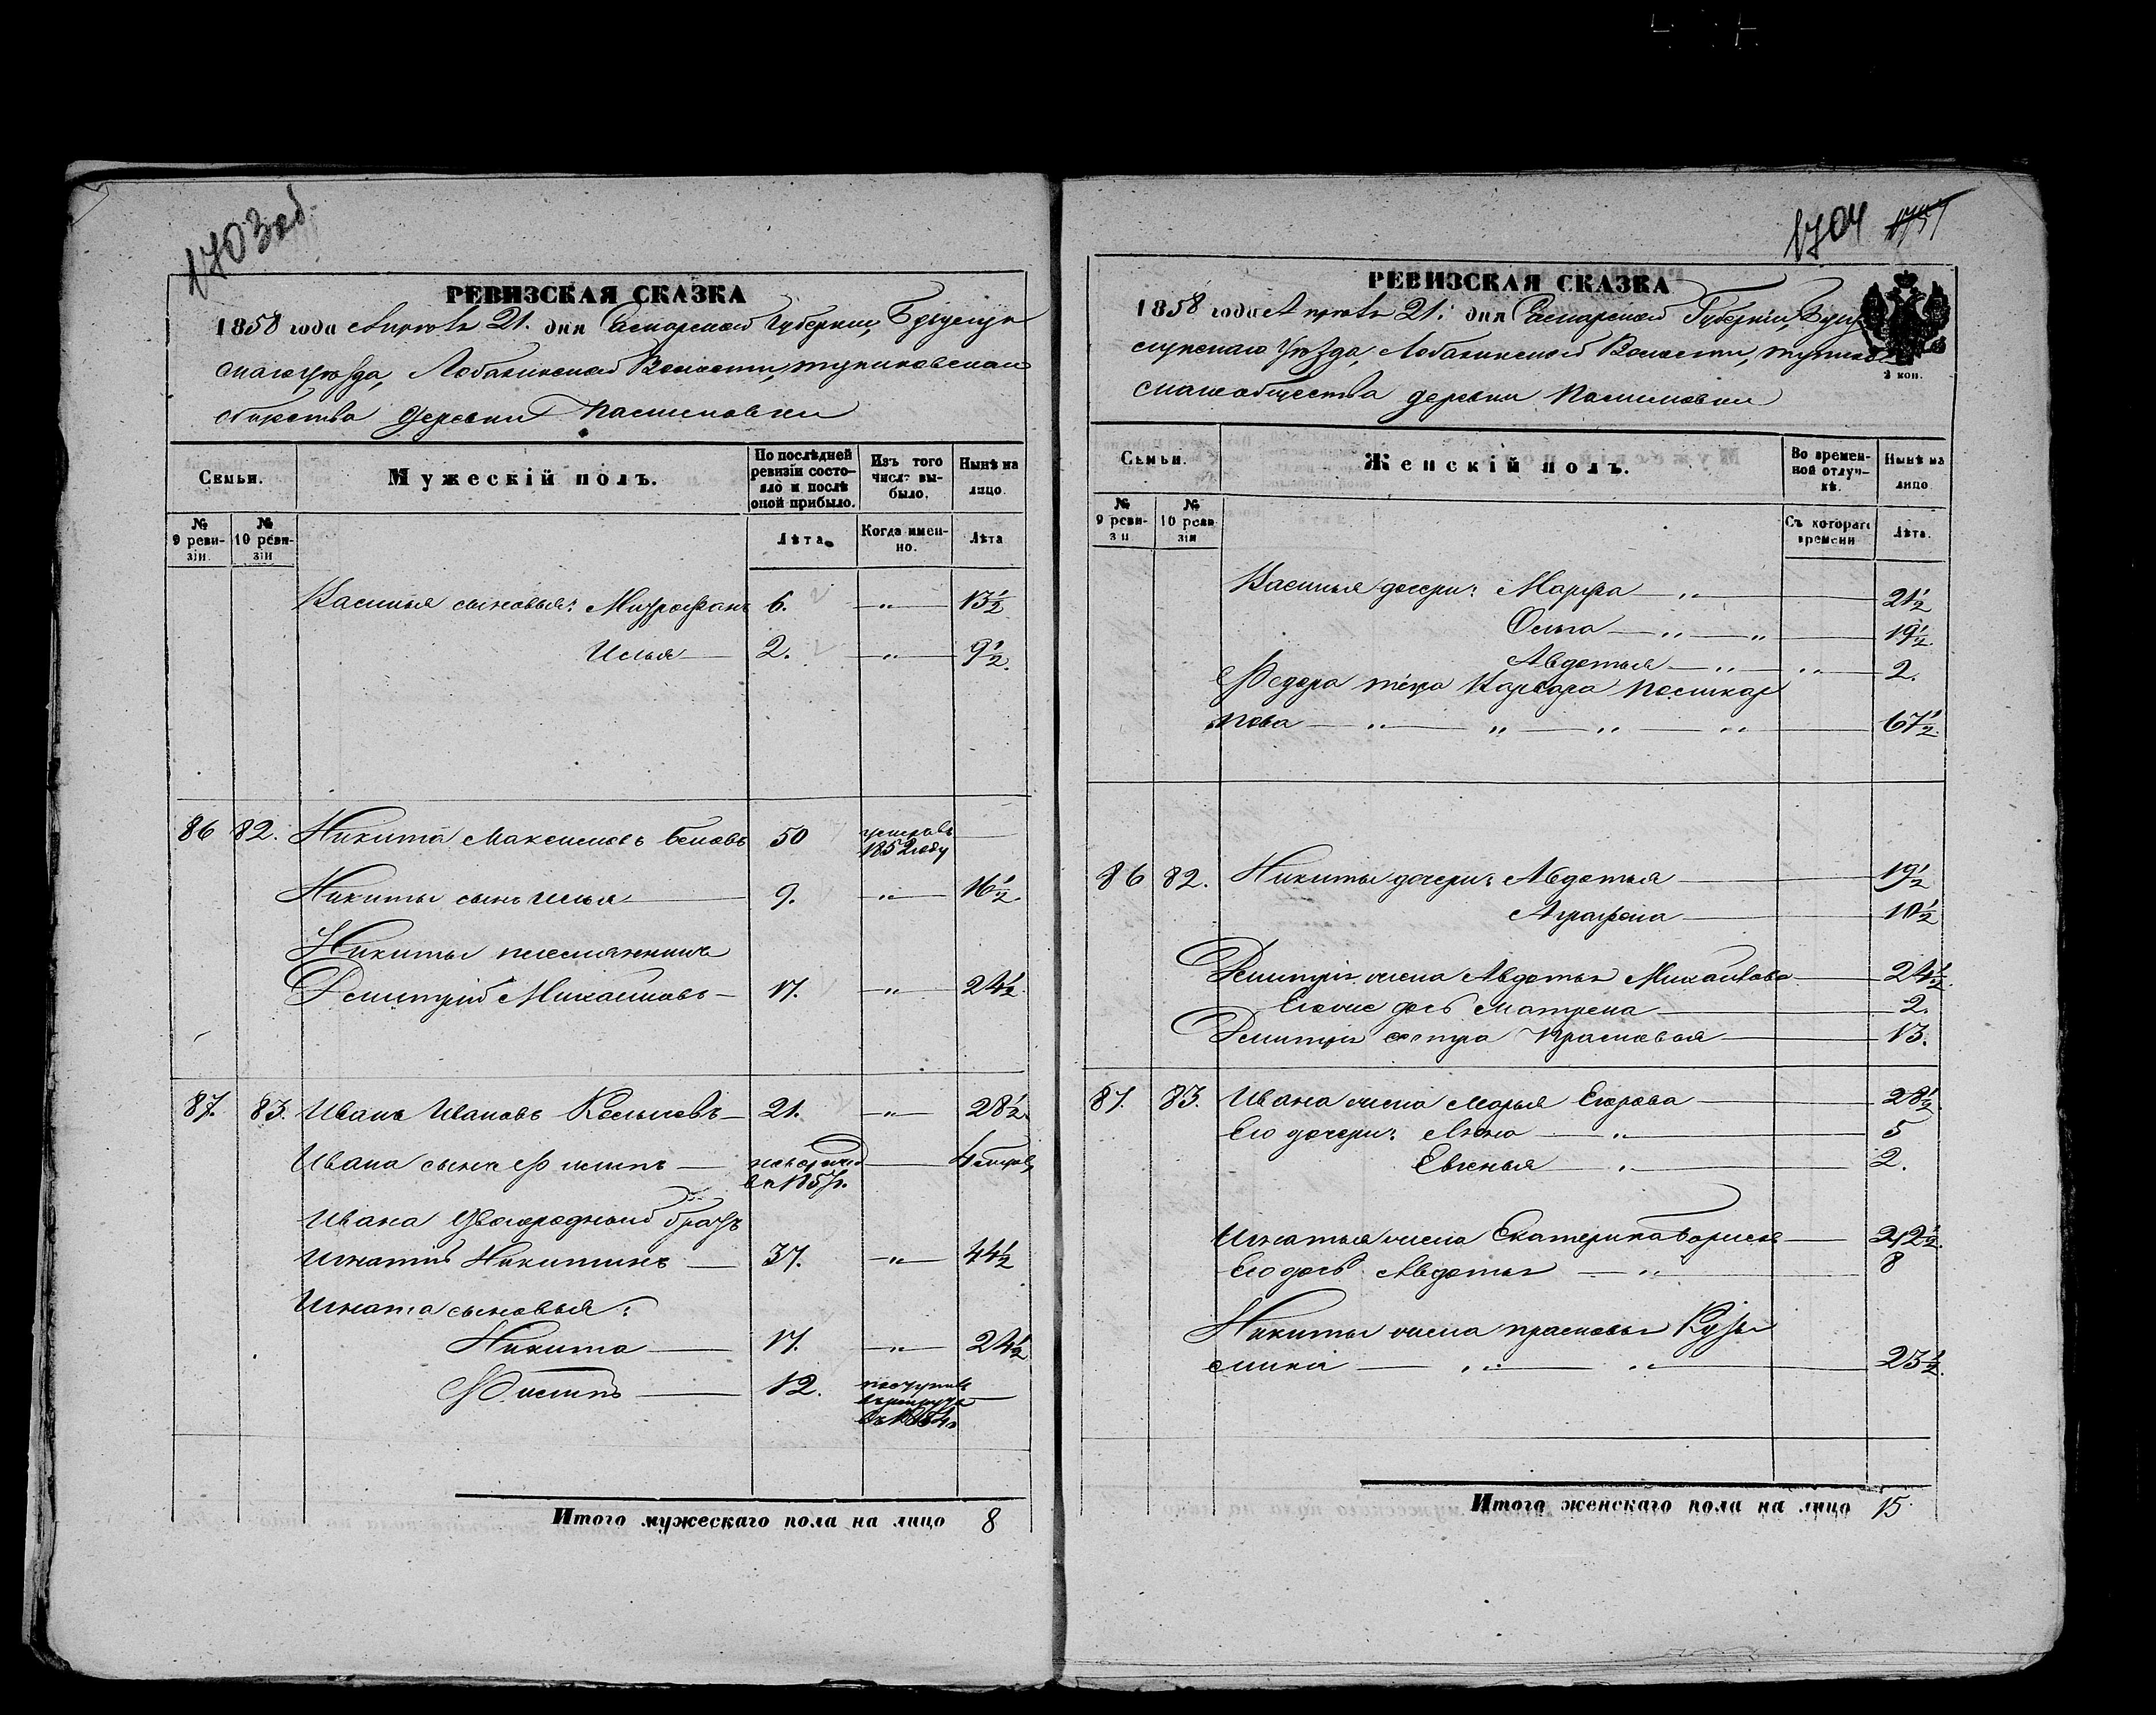 1703 об.
РЕВИЗСКАЯ СКАЗКА
1858 года Апреля 21. дня Самарской Губернии, Бугурус
скаго уезда, Лобазинской Волости,
общества деревни
Семьи.
Мужескій полъ.
По послѣдней ревизіи состояло и послѣ оной прибыло.
Изъ того числа выбыло.
Нынѣ на лицо.
№ 9 ревизіи.
№ 10 ревизіи
Лѣта
Когда именно.
Лѣта
Василья сыновья: Митрофанъ 6. —„— 13½
Илья — 2. —„— 9½.
86 82. Никита Максимовъ 50 умеръ въ 1852 году —
Никиты сынъ Илья — 9. —„— 16½.
Никиты племянникъ
Дмитрій Михайловъ — 17. —„— 24½.
87. 83. Иванъ Ивановъ — 21. —„— 28½.
Ивана сынъ Филипъ —
Ивана двоюродный братъ
Игнатій Никитинъ — 37. —„— 44½
Игната сыновья:
Никита — 17. —„— 24½
Филипъ — 12. поступилъ въ рекруты въ 1854г —
Итого мужескаго пола на лицо 8
1704
РЕВИЗСКАЯ СКАЗКА
1858 года Апреля 21. дня Самарской Губерніи, Бугу
русланскаго уезда, Лобазинской Волости,
скаго общества деревни
3 коп.
Семьи.
Женскій полъ.
Во временной отлучкѣ.
Нынѣ на лицо
№ 9 ревизіи
№ 10 ревизіи
Съ котораго времени
Лѣта.
Василья дочери: Марфа —„— 21½
Ольга —„—„— 19½.
Авдотья —„—„— 2.
Федора тёща Варвара Поликар
пова —„—„—„—„— 67½.
86 82. Никиты дочери: Авдотья — 19½
Аграфена — 10½
Дмитрія жена Авдотья Михайлова — 24½.
Его же дочь Матрена — 2.
Дмитрія сестра Прасковья — 13.
87. 83. Ивана жена Марья Егорова — 28½.
Его дочери: Анна —„— 5
Евгенья —„— 2.
Игнатья жена Екатерина Борисова —
Его дочь Авдотья —„— 8
Никиты жена Прасковья Кузь
мина —„—„— 23½.
Итого женскаго пола на лицо 15.